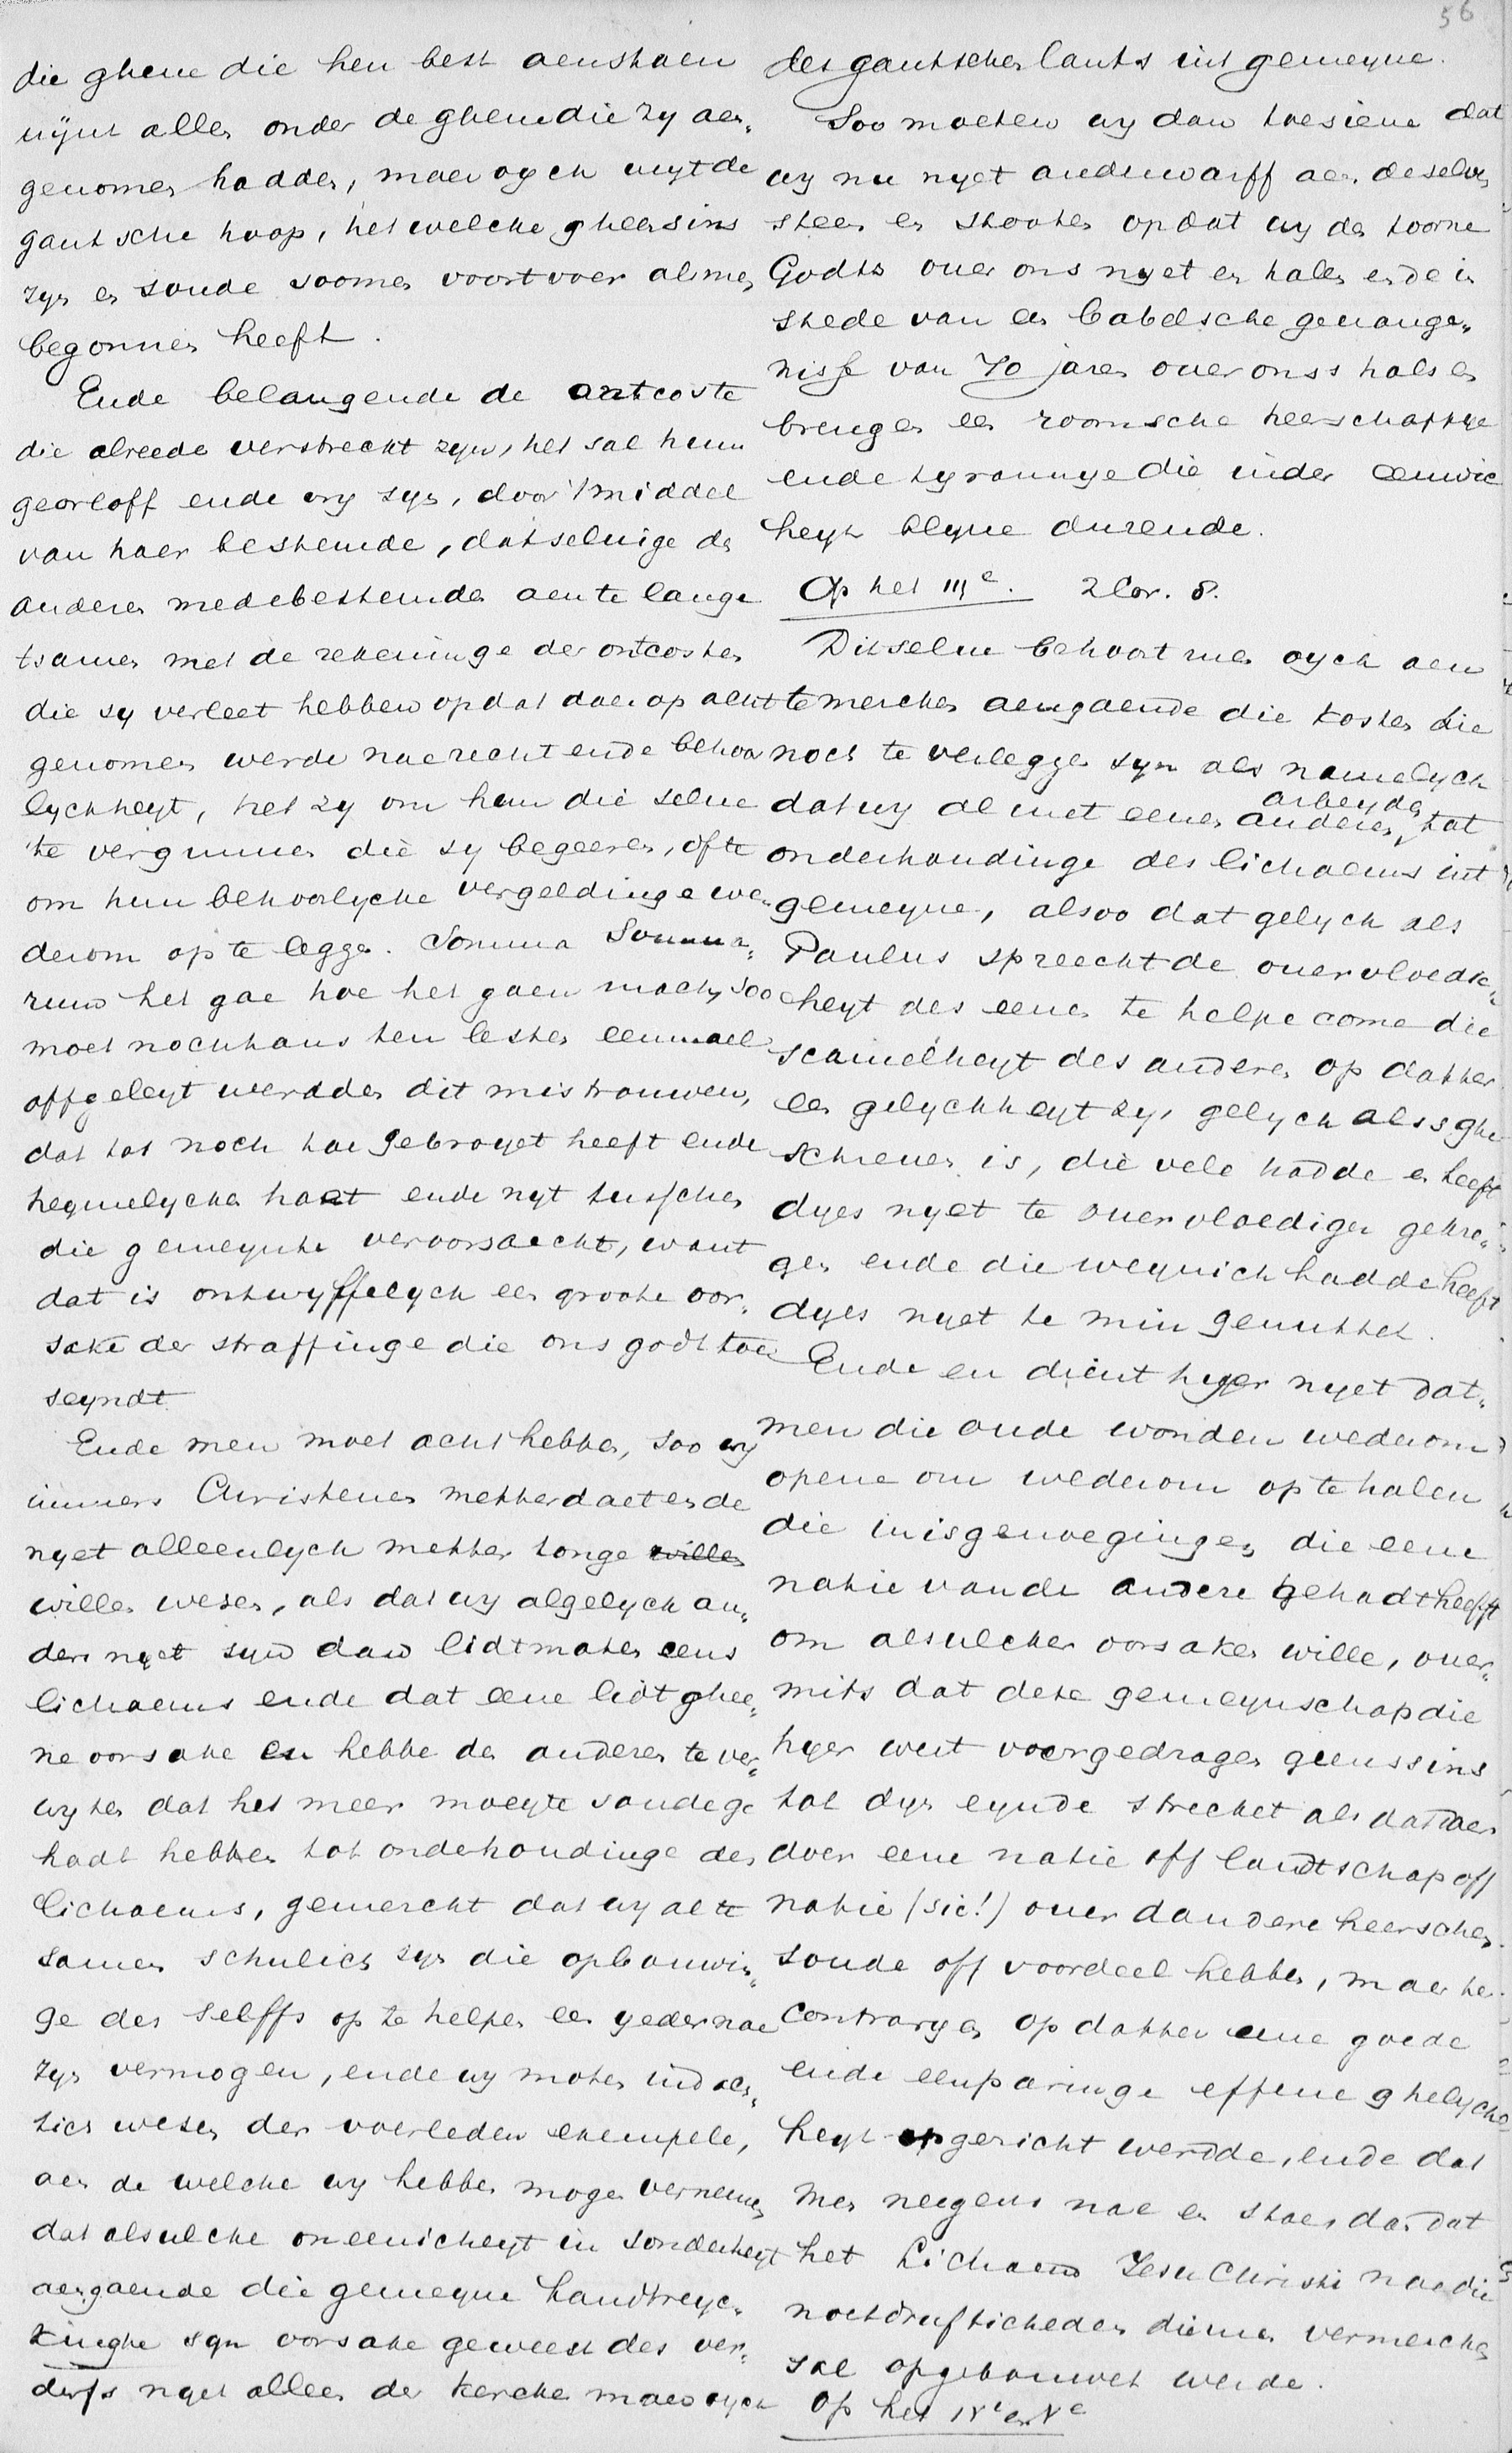 56
die ghene die hen best aenstaen
uÿut alles onder de ghene die zy aen„
genomen hadden, maer oyck uuyt de
gantsche hoop, het welcke gheensins
zyn en soude soomen voortvoer alsmen
begonnen heeft.
Ende belangende de ontcoste
die alreede verstreckt zyn, het sal hun
georloff ende vry syn, door 't middel
van haer bestemde, datselvige den
anderen medebestemden aen te lange
tsamen met de rekeninge der ontcosten
die sy verleet hebben opdat daer op acht
genomen werde nae recht ende behoor
lyckheyt, het zy om hem die selve
te vergunnen die sy begeeren, ofte
om hun behoorlycke vergeldinge we„
derom op te leggen. Somma Somma„
rum het gae hoe het gaen mach, soo
moet nochtans ten lesten eenmael
affgeleyt werdden dit mistrouwen,
dat tot noch toe gebroyet heeft ende
heymelycken haet ende nyt tusschen
die gemeynte veroorsaeckt, want
dat is ontwyffelyck een groote oor„
sake der straffinge die ons godt toe
seyndt
Ende men moet acht hebben, soo wy
immers Christenen metter daet ende
nyet alleenlyck metter tonge willen
willen wesen, als dat wy algelyck an„
ders nyet syn dan lidtmaten eens
lichaems ende dat eene lidt ghee„
ne oorsake en hebbe den anderen te ver„
wyten dat het meer moeyte soude ge
hadt hebben tot onderhoudinge des
lichaems, gemerckt dat wy al te
samen schulich syn die opbouwin„
ge des selffs op te helpen een yeder nae
zyn vermogen, ende wy moten indach„
tich wesen der voorleden exempele,
aen de welche wy hebben mogen vernemen
dat alsulcke oneenicheyt in sonderheyt
aengaende die gemeyne handtreyc„
kinghe syn oorsake geweest des ver„
derfs nyet alleen der kercke maer oyck
des gantschen lants int gemeyne.
Soo moeten wy dan toesiene dat
wy nu nyet anderwarff aen deselven
steen en stooten opdat wy den toorne
Godts over ons nyet en halen ende in
stede van en babelsche gevange„
nisse van 70 jaren over onss hals en
brengen een roomsche heerschappye
ende tyrannye die inder eeuwic
heyt blyve durende.
Op het IIIe. 2 Cor. 8.
Ditselve behoort men oyck aen
te mercken aengaende die kosten die
noch te verleggen syn als namelyck
dat wy al met eenen anderen arbeyden tot
onderhoudinge des lichaems int
gemeyne, alsoo dat gelyck als
Paulus spreeckt de overvloedic„
heyt des eenen te helpe come die
scamelheyt des anderen op datter
een gelyckheyt zy, gelyck alss ghe
schreven is, die vele hadde en heeft
dyes nyet te overvloediger gekre„
gen ende die weynich hadde heeft
dyes nyet te min genuttet.
Ende en dient hyer nyet dat„
men die oude wonden wederom
opene om wederom op te halen
die misgenoegingen die eene
natie vande andere gehadt heefft
om alsulcken oorsaken wille, over„
mits dat dese gemeynschap die
hyer wert voorgedragen geenssins
tot dyn eynde strecket als dat daer
door eene natie off landtschap off
natie (sic!) over dandere heerschen
soude off voordeel hebben, maer ter
contraryen op datter eene goede
ende eenparinge effene ghelyck
heyt opgericht werdde, ende dat
men nergens nae en staen dan dat
het Lichaem Jesu Christi nae die
nootdrufticheden diemen vermercken
sal opgebouwet werde.
Op het IVe en Ve